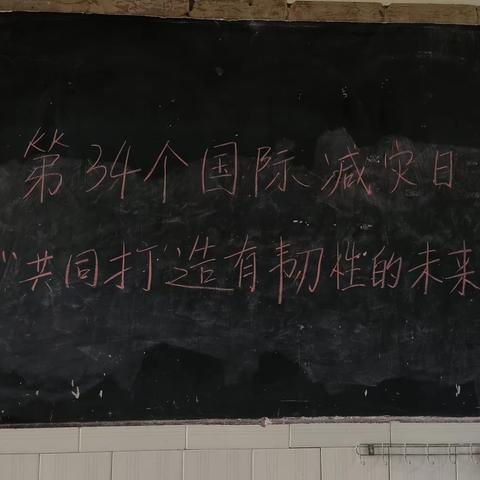 第34个国际减灾日
“共同打造有韧性的未来